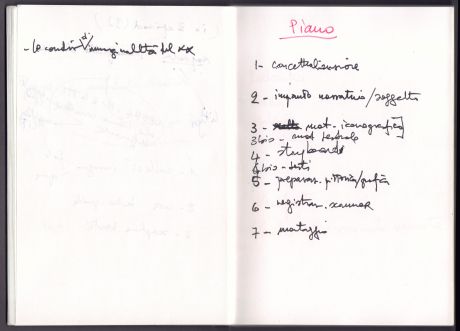 - Le condiz. di marginalità del XX
Piano
1- concettualizzazione
2 - impianto narrativo/soggetto
3 - mat. iconografico]
3bis - mat. testuale
4 - storyboard
4bis - testi
5 - preparaz. pittorica/grafica
6 - registraz. scanner
7 - montaggio